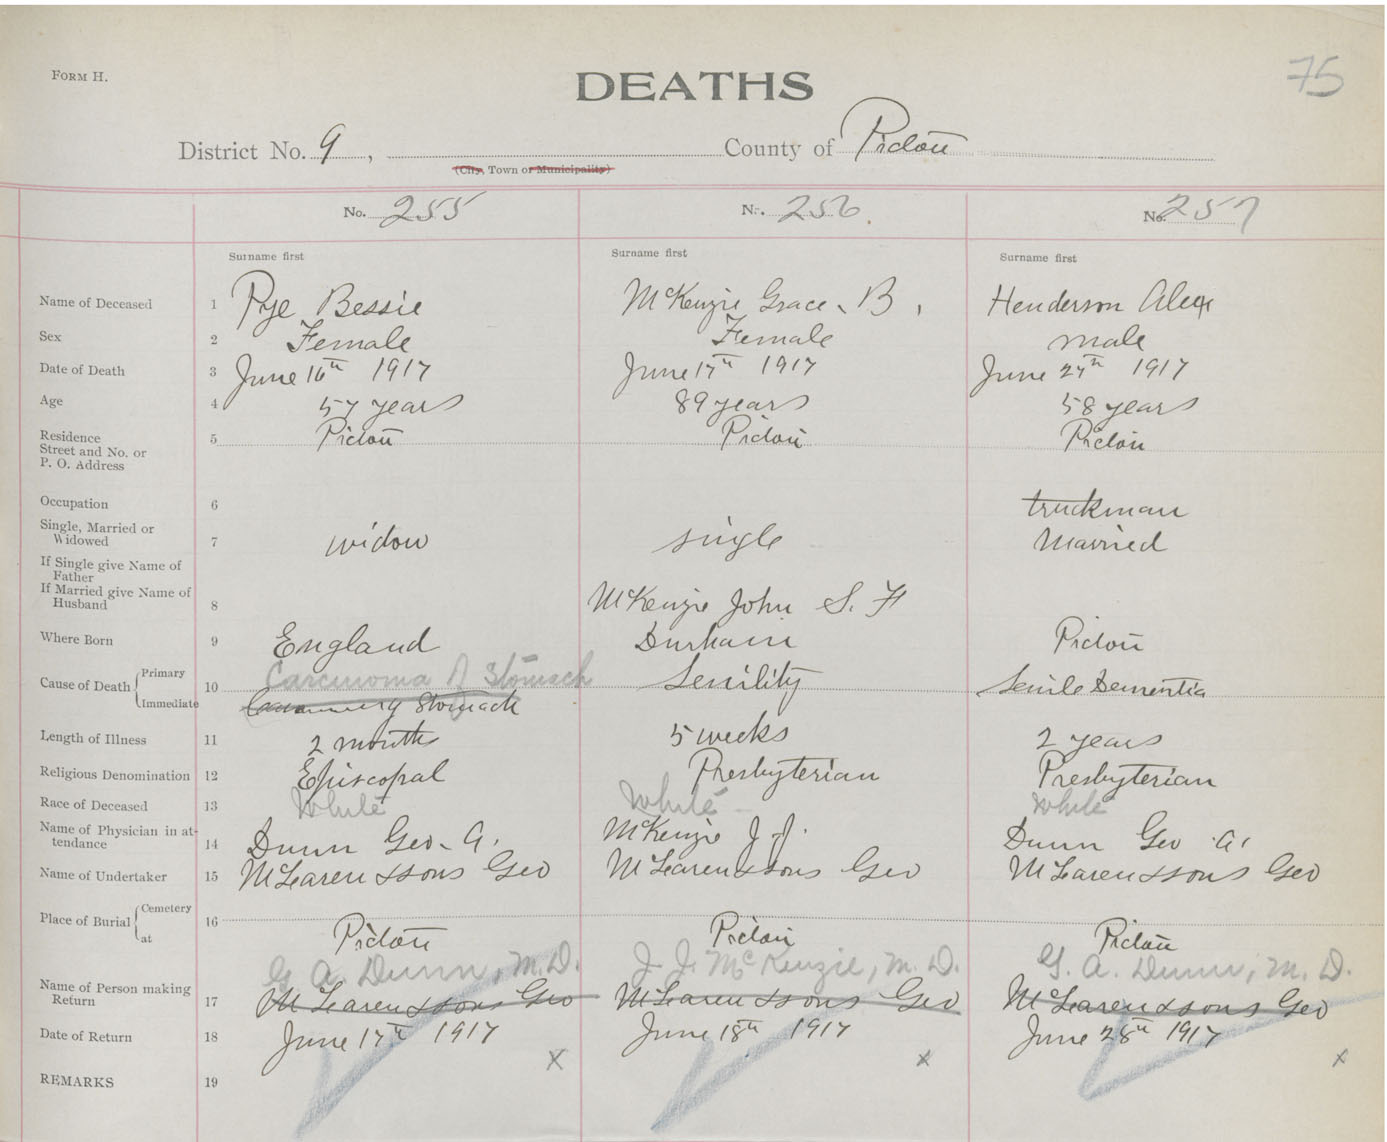 FORM H.
75
DEATHS
District No. 9, County of Pictou
(City, Town or Municipality)
No. 255 No. 256. No. 257
Surname first Surname first Surname first
Name of Deceased 1 Pye Bessie McKenzie Grace B, Henderson Alex
Sex 2 Female Female male
Date of Death 3 June 16th 1917 June 17th 1917 June 27th 1917
Age 4 57 years 89 years 58 years
Residence
Street and No. or
P. O. Address
5 Pictou Pictou Pictou
Occupation 6 truckman
Single, Married or
Widowed 7 widow single Married
If Single give Name of
Father
If Married give Name of
Husband 8 McKenzie John S. F
Where Born 9 England Durham Pictou
Cause of Death Primary
Immediate
10 Carcinoma of Stomach Senility Senile Dementia
Stomach
Length of Illness 11 2 months 5 weeks 2 years
Religious Denomination 12 Episcopal Presbyterian Presbyterian
Race of Deceased 13 White White White
Name of Physician in at-
tendance 14 Dunn Geo. A. McKenzie J J. Dunn Geo. A.
Name of Undertaker 15 McLaren & sons Geo McLaren & sons Geo McLaren & sons Geo
Place of Burial Cemetery
at
16 Pictou Pictou Pictou
G. A. Dunn, M.D. J. J. McKenzie, M.D. G. A. Dunn, M.D.
Name of Person making
Return 17 McLaren & sons Geo McLaren & sons Geo McLaren & sons Geo
Date of Return 18 June 17th 1917 June 18th 1917 June 28th 1917
x x x
REMARKS 19